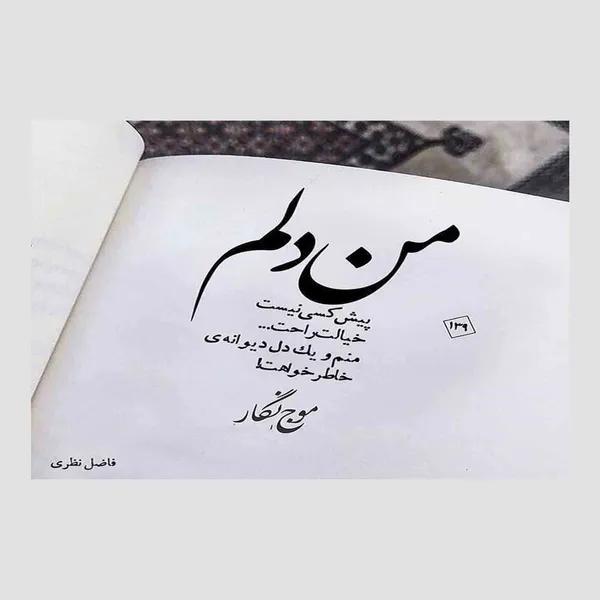 من دلم
پیش کسی نیست
خیالت راحت...
منم و یك دل دیوانه‌ی
خاطر خواهت!
موج نگار
۱۳۹
فاضل نظری